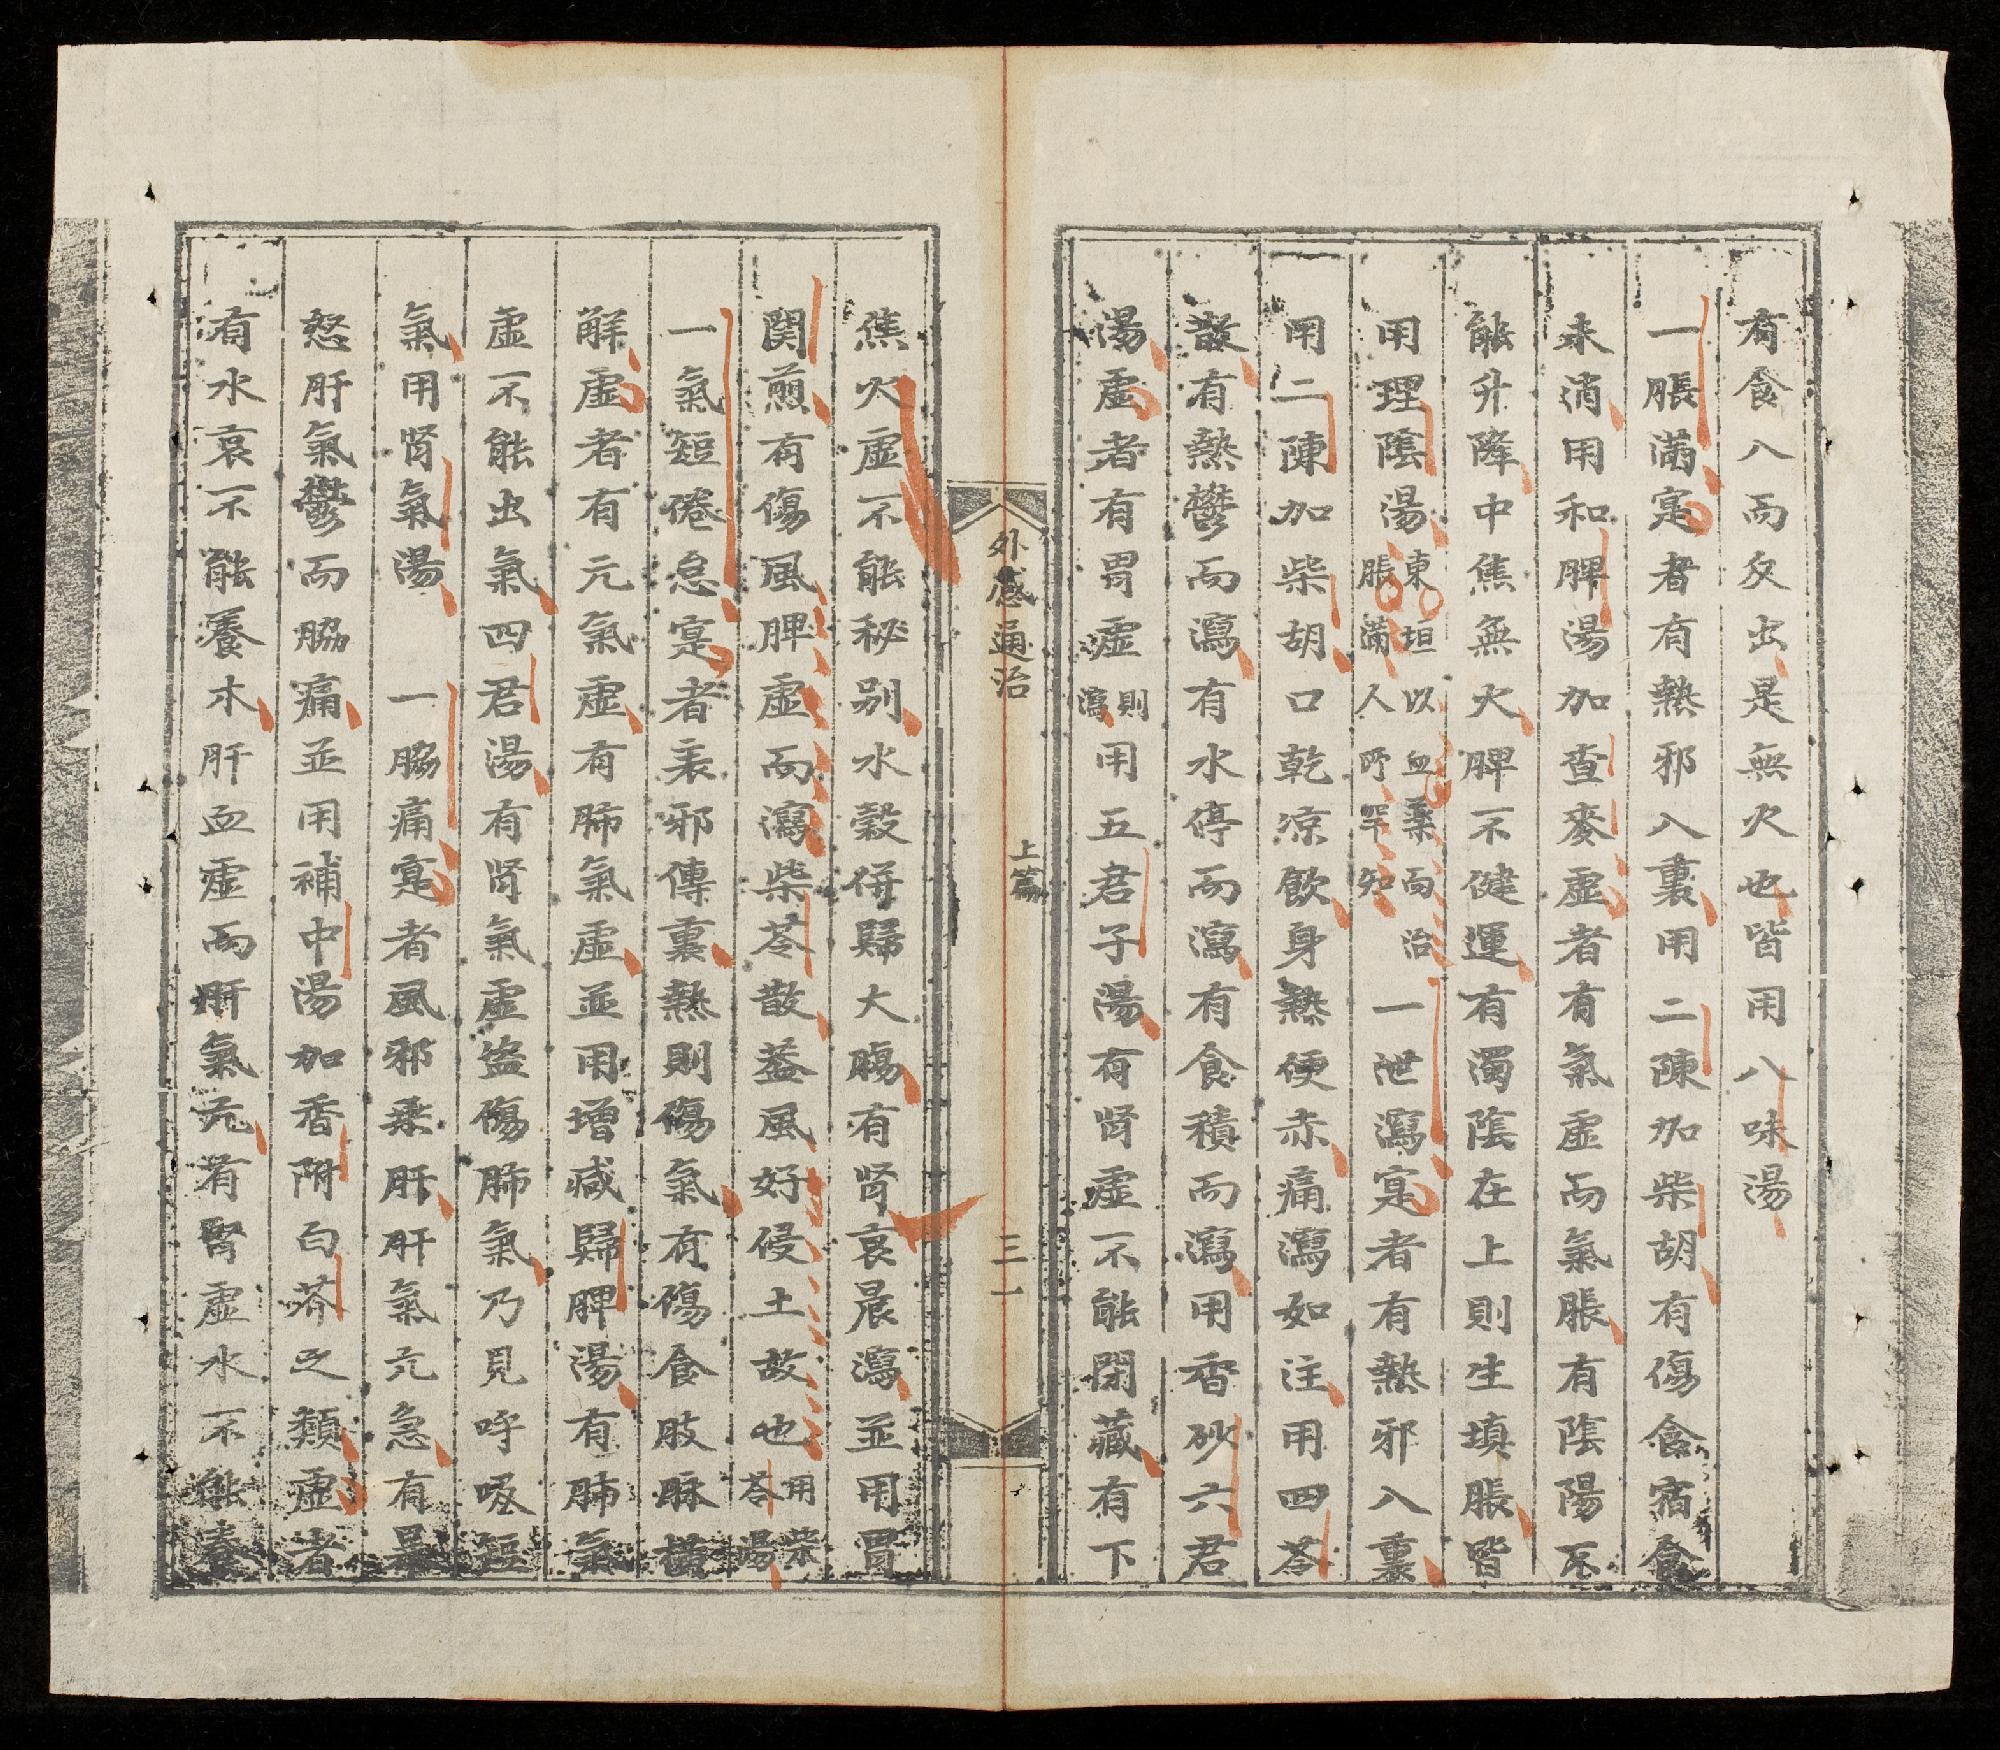 有食入而反出是無火也皆用八味湯
一脹滿寔者有熱邪入裏用二陳加柴胡有傷食宿食
未消用和脾湯加查麥虛者有氣虛而氣脹有隂陽不
能升降中焦無火脾不健運有濁隂在上則生填脹皆
用理隂湯東垣以血藥而治脹滿人所罕知一泄瀉寔者有熱邪入裏
用二陳加柴胡口乾凉飲身熱便赤痛瀉如注用四苓
散有熱鬱而瀉有水停而瀉有食積而瀉用香砂六君
湯虛者有胃虛則瀉用五君子湯有肾虛不能閉藏有下
外感通治 上篇 三一
焦火虛不能秘别水穀併歸大腸有肾衰晨瀉並用胃
関煎有傷風脾虛而瀉柴苓散葢風好侵土故也用柴苓湯
一氣短倦怠寔者表邪傳裏熱則傷氣有傷食肢脉橫
解虛者有元氣虛有肺氣虛並用增减歸脾湯有肺氣
虛不能出氣四君湯有肾氣虛盜傷肺氣乃見呼吸短
氣用肾氣湯 一脇痛寔者風邪乘肝肝氣亢急有暴
怒肝氣鬱而脇痛並用補中湯加香附白芥之類虛者
有水衰不能養木肝血虛而肝氣亢有腎虛水不能養